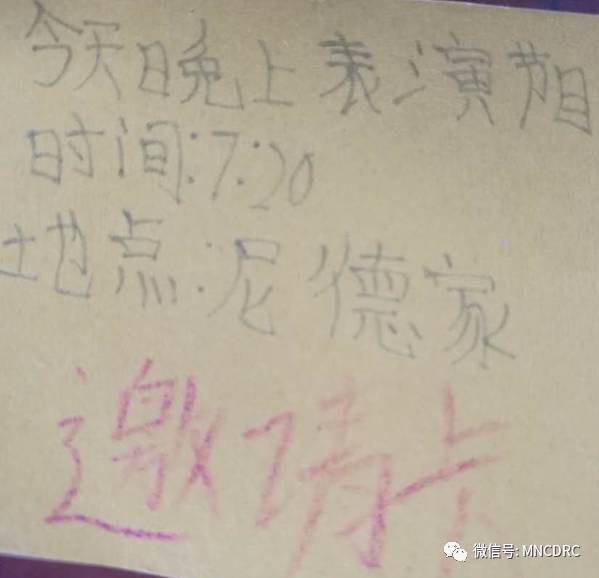 今天晚上表演节目
时间:7:20
地点:尼德家
邀请卡
微信号: MNCDRC